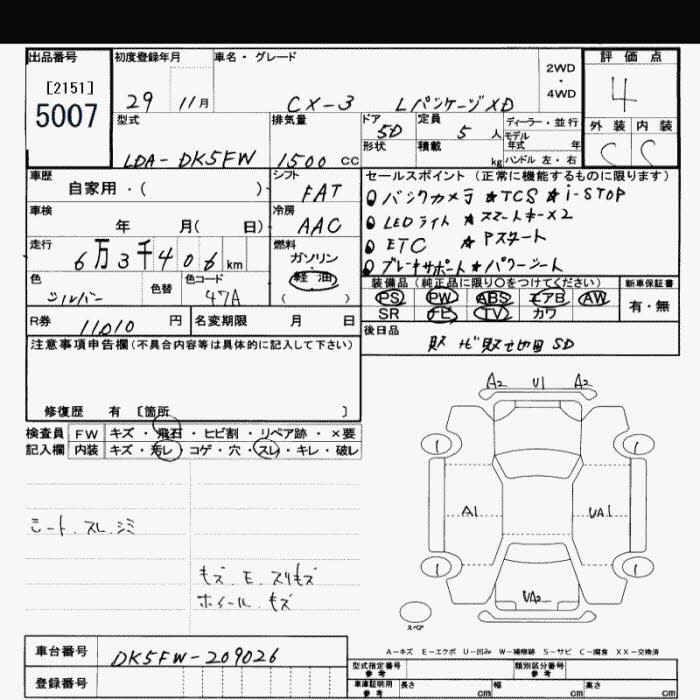 出品番号 初度登録年月 車名・グレード 2WD・4WD 評価点
[2151]
5007 29 11月 CX-3 Lパッケージ XD 4
外装 内装
C C
型式 排気量 ドア 定員 ディーラー・並行
5D 5人 モデル年式 年
LDA-DK5FW 1500cc 形状 積載 kg ハンドル 左・右
車歴 シフト セールスポイント(正常に機能するものに限ります)
自家用・( ) FAT バックカメラ ★TCS ★i-STOP
車検 冷房 LEDライト ★スマートキー×2
年 月( 日) AAC ETC ★Pスタート
走行 燃料 ブレーキサポート★パワーシート
6万3千406km ガソリン・軽油
( )
色 色替 色コード 装備品(純正品に限り○をつけてください) 新車保証書
シルバー 47A PS PW ABS エアB AW 有・無
SR ナビ TV カワ
R券 11010円 名変期限 月 日 後日品
注意事項申告欄(不具合内容等は具体的に記入して下さい) 取 ナビ取セ地図SD
修復歴 有 [箇所 ]
検査員 FW キズ・飛石・ヒビ割・リペア跡・×要
記入欄 内装 キズ・汚レ コゲ・穴・スレ・キレ・破レ
A2 U1 A2
A1 UA1
UA2
シート、スレ、シミ
キズ、E、スリキズ
ホイール、キズ
スペア
A-キズ E-エクボ U-凹み W-補修跡 S-サビ C-腐食 XX-交換済
車台番号 DK5FW-209026 型式指定番号 参考 類別区分番号 参考
登録番号 車庫証明用 参考 長さ cm 幅 cm 高さ cm